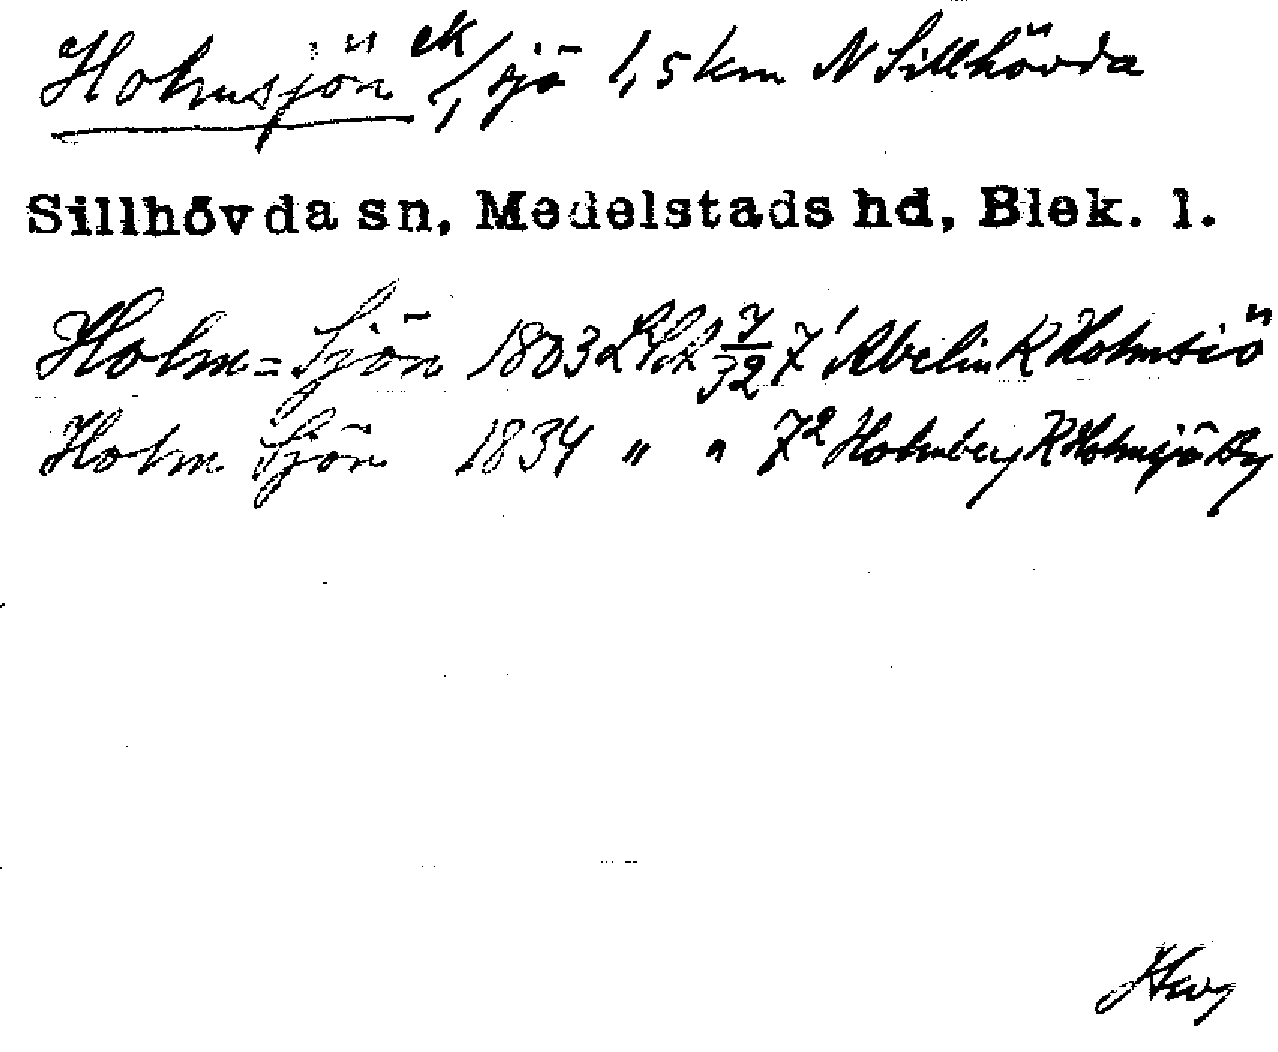 Holmsjön ek /, sjö 1,5 km N Sillhövda
Sillhövda sn, Medelstads hd, Blek. l.
Holm=Sjön 1803 7/32 7¹ Abelin K Holmsiö
Holm Sjön 1834 " " 7² Holmberg K Holmsjö By